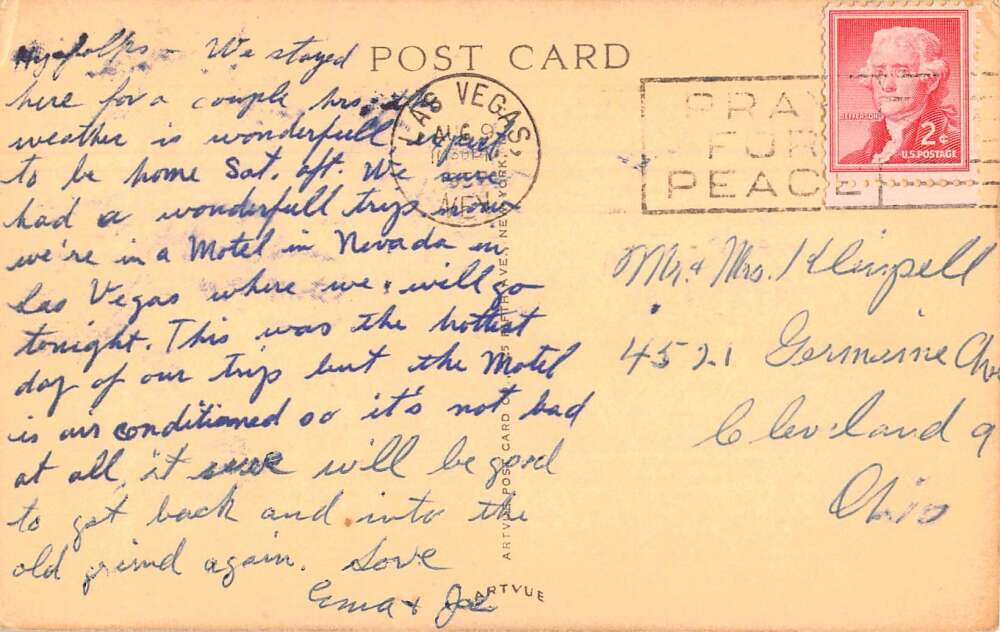 Hi folks – We stayed
here for a couple hrs. the
weather is wonderfull, expect
to be home Sat. aft. We sure
had a wonderfull trip. now
we're in a Motel in Nevada in
Las Vegas where we will go
tonight. This was the hottest
day of our trip but the Motel
is air conditioned so it's not bad
at all, it will be good
to get back and into the
old grind again. Love
& Joe
POST CARD
LAS VEGAS
AUG 9
NEV.
PRAY
FOR
PEACE
JEFFERSON
2¢
U.S. POSTAGE
Mr. & Mrs. Klimpell
4521 Germaine Ave
Cleveland 9
Ohio
ARTVUE POST CARD CO. 225 FIFTH AVE., NEW YORK,
ARTVUE